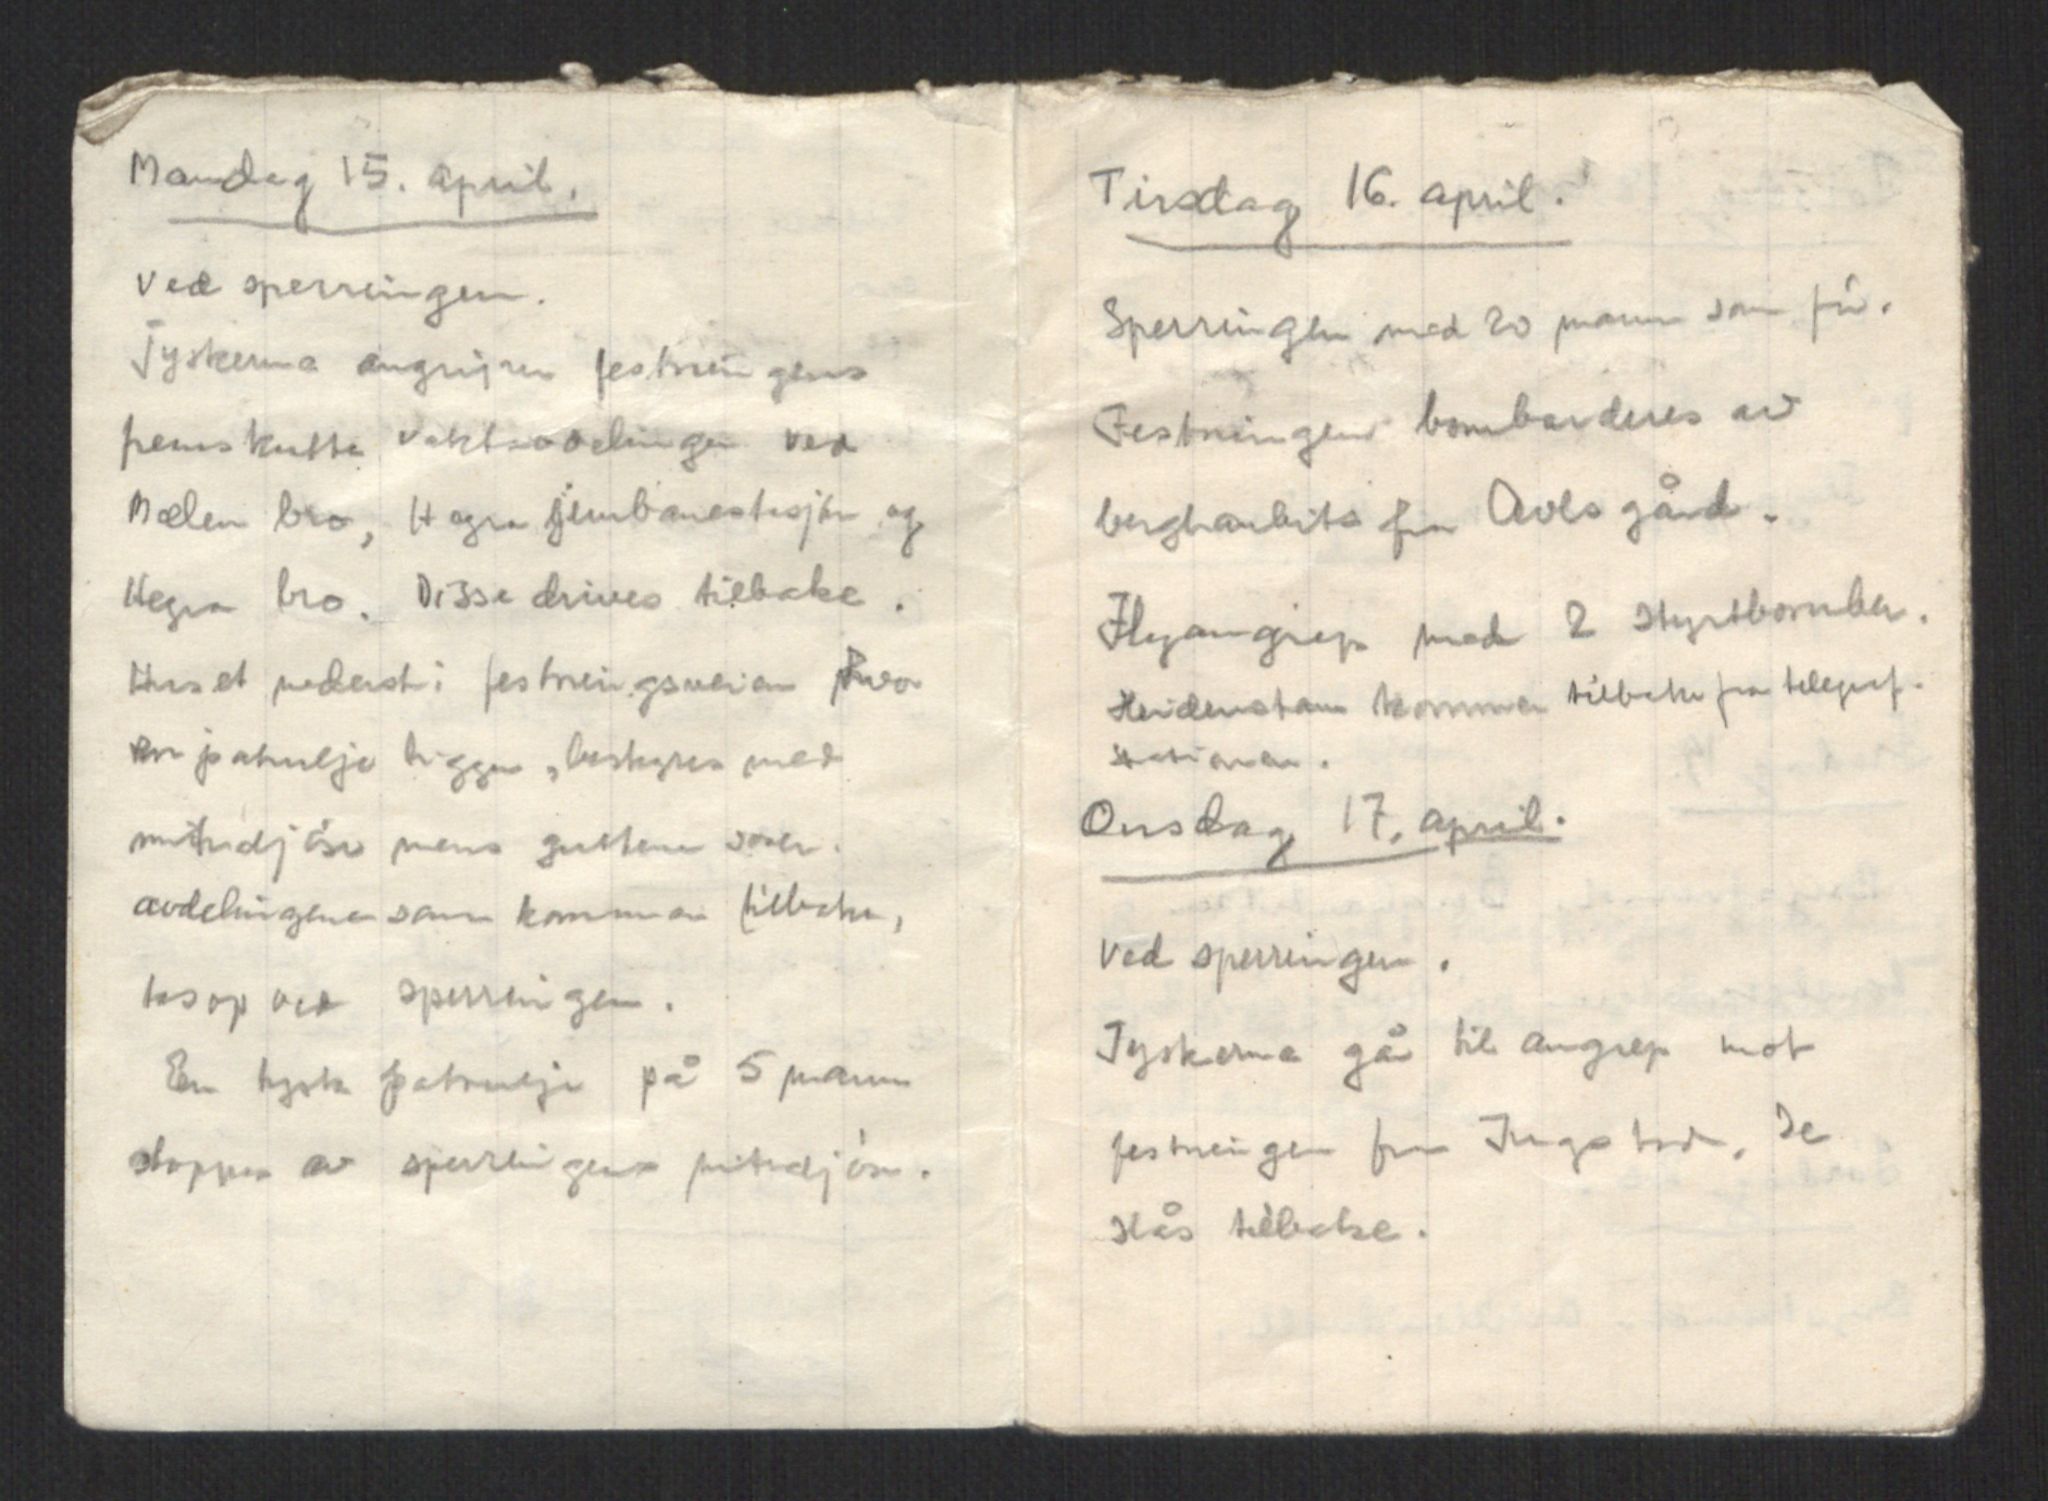 Mandag 15. april.
Ved sperringen.
Tyskerne angriper festningens
fremskutte vaktavdelinger ved
Mælen bro, Hegra jernbanestasjon og
Hegra bro. Disse drives tilbake.
Huset nederst i festningsveien hvor
en patrulje ligger, beskytes med
mitraljöse mens guttene sover.
avdelingene som kommer tilbake,
tas op ved sperringen.
En tysk patrulje på 5 mann
stoppes av sperringens mitraljöse.
Tirsdag 16. april.
Sperringen med 20 mann som för.
Festningen bombarderes av
berghaubits fra Avlsgård.
Flyangrep med 2 styrtbomber.
Heidenstam kommer tilbake fra telegraf-
stationen.
Onsdag 17. april.
Ved sperringen.
Tyskerne går til angrep mot
festningen fra Ingstad. De
slås tilbake.